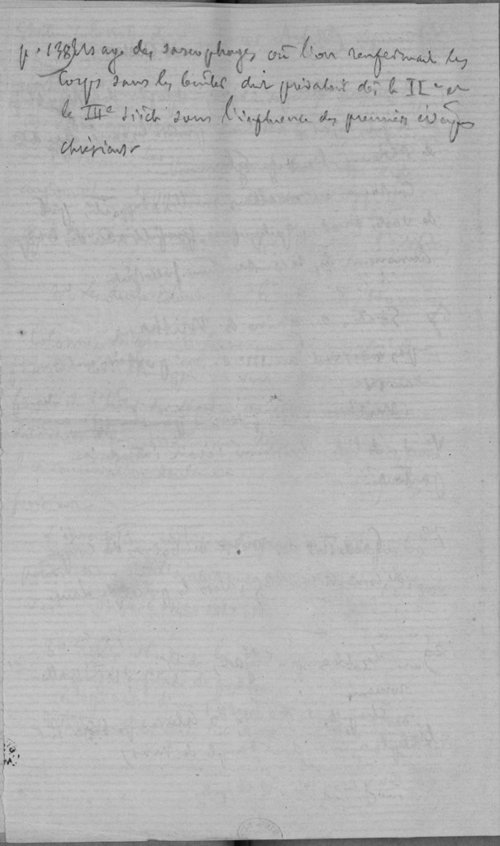 p. 138 Usage des sarcophages où l'on renfermait les
corps sans les brûler dut prévaloir dès le IIe et
le IIIe siècle sous l'influence des premiers
chrétiens